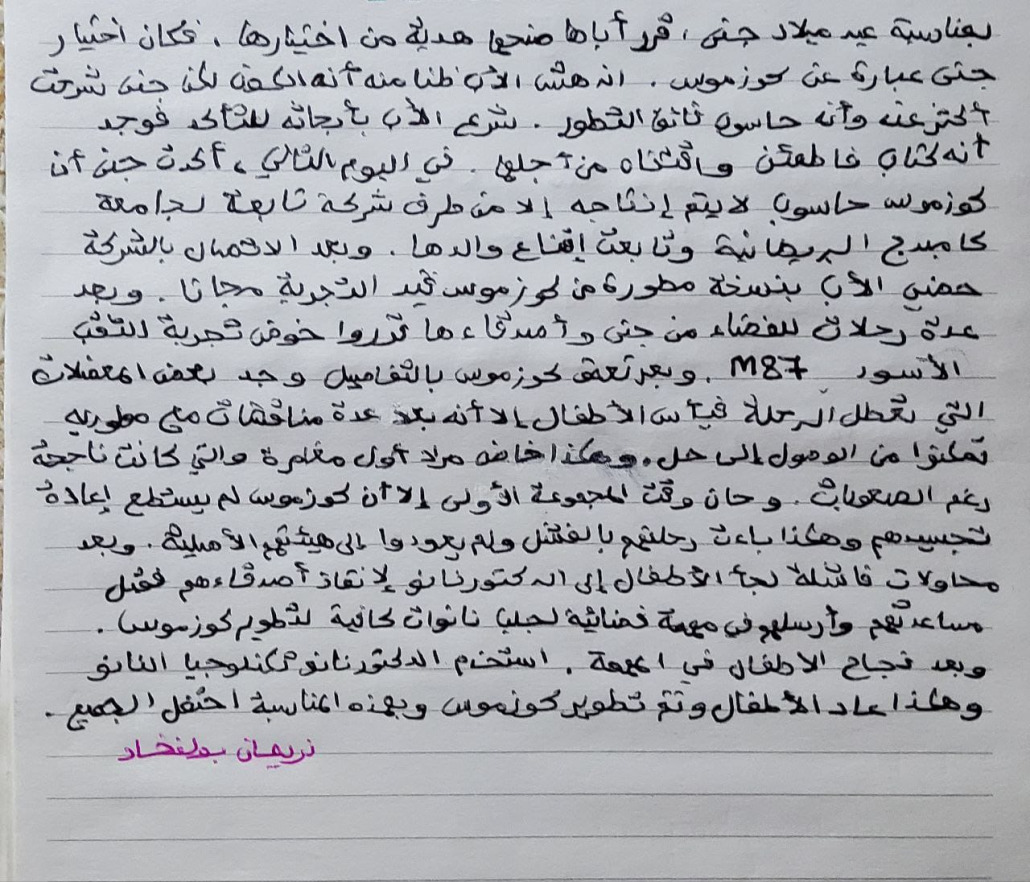 بمناسبة عيد ميلاد جنى ، قرر أباها منحها هدية من اختيارها ، فكان اختيار
جنى عبارة عن كوزموس . اندهش الأب ظنا منه أنه الكون لكن جنى شرحت
أكثر عنه وأنه حاسوب فائق التطور . شرع الأب بأبحاثه للتأكد فوجد
أنه كتاب فاطمئن واقتناه من أجلها . في اليوم التالي ، أكدت جنى أن
كوزموس حاسوب لا يتم إنتاجه إلا من طرف شركة تابعة لجامعة
كامبدج البريطانية وتابعت إقناع والدها . وبعد الاتصال بالشركة
حضي الأب بنسخة مطورة من كوزموس قيد التجربة مجانا . وبعد
عدة رحلات للفضاء من جنى وأصدقاءها قرروا خوض تجربة الثقب
الأسود M87 . وبعد تعمق كوزموس بالتفاصيل وجد بعض المعضلات
التي تعطل الرحلة فيأس الأطفال إلا أنه بعد عدة مناقشات مع مطوريه
تمكنوا من الوصول إلى حل . وهكذا خاض مراد أول مغامرة والتي كانت ناجحة
رغم الصعوبات . وحان وقت المجموعة الأولى إلا أن كوزموس لم يستطع إعادة
تجسيدهم وهكذا باءت رحلتهم بالفشل ولم يعودوا إلى هيئتهم الأصلية . وبعد
محاولات فاشلة لجأ الأطفال إلى الدكتور نانو لإنقاذ أصدقاءهم فقبل
مساعدتهم وأرسلهم في مهمة فضائية لجلب نانوات كافية لتطوير كوزموس .
وبعد نجاح الاطفال في المهمة . استخدم الدكتور نانو تكنلوجيا النانو
وهكذا عاد الأطفال وتم تطوير كوزموس وبهذه المناسبة احتفل الجميع .
نريمان بولفخاد